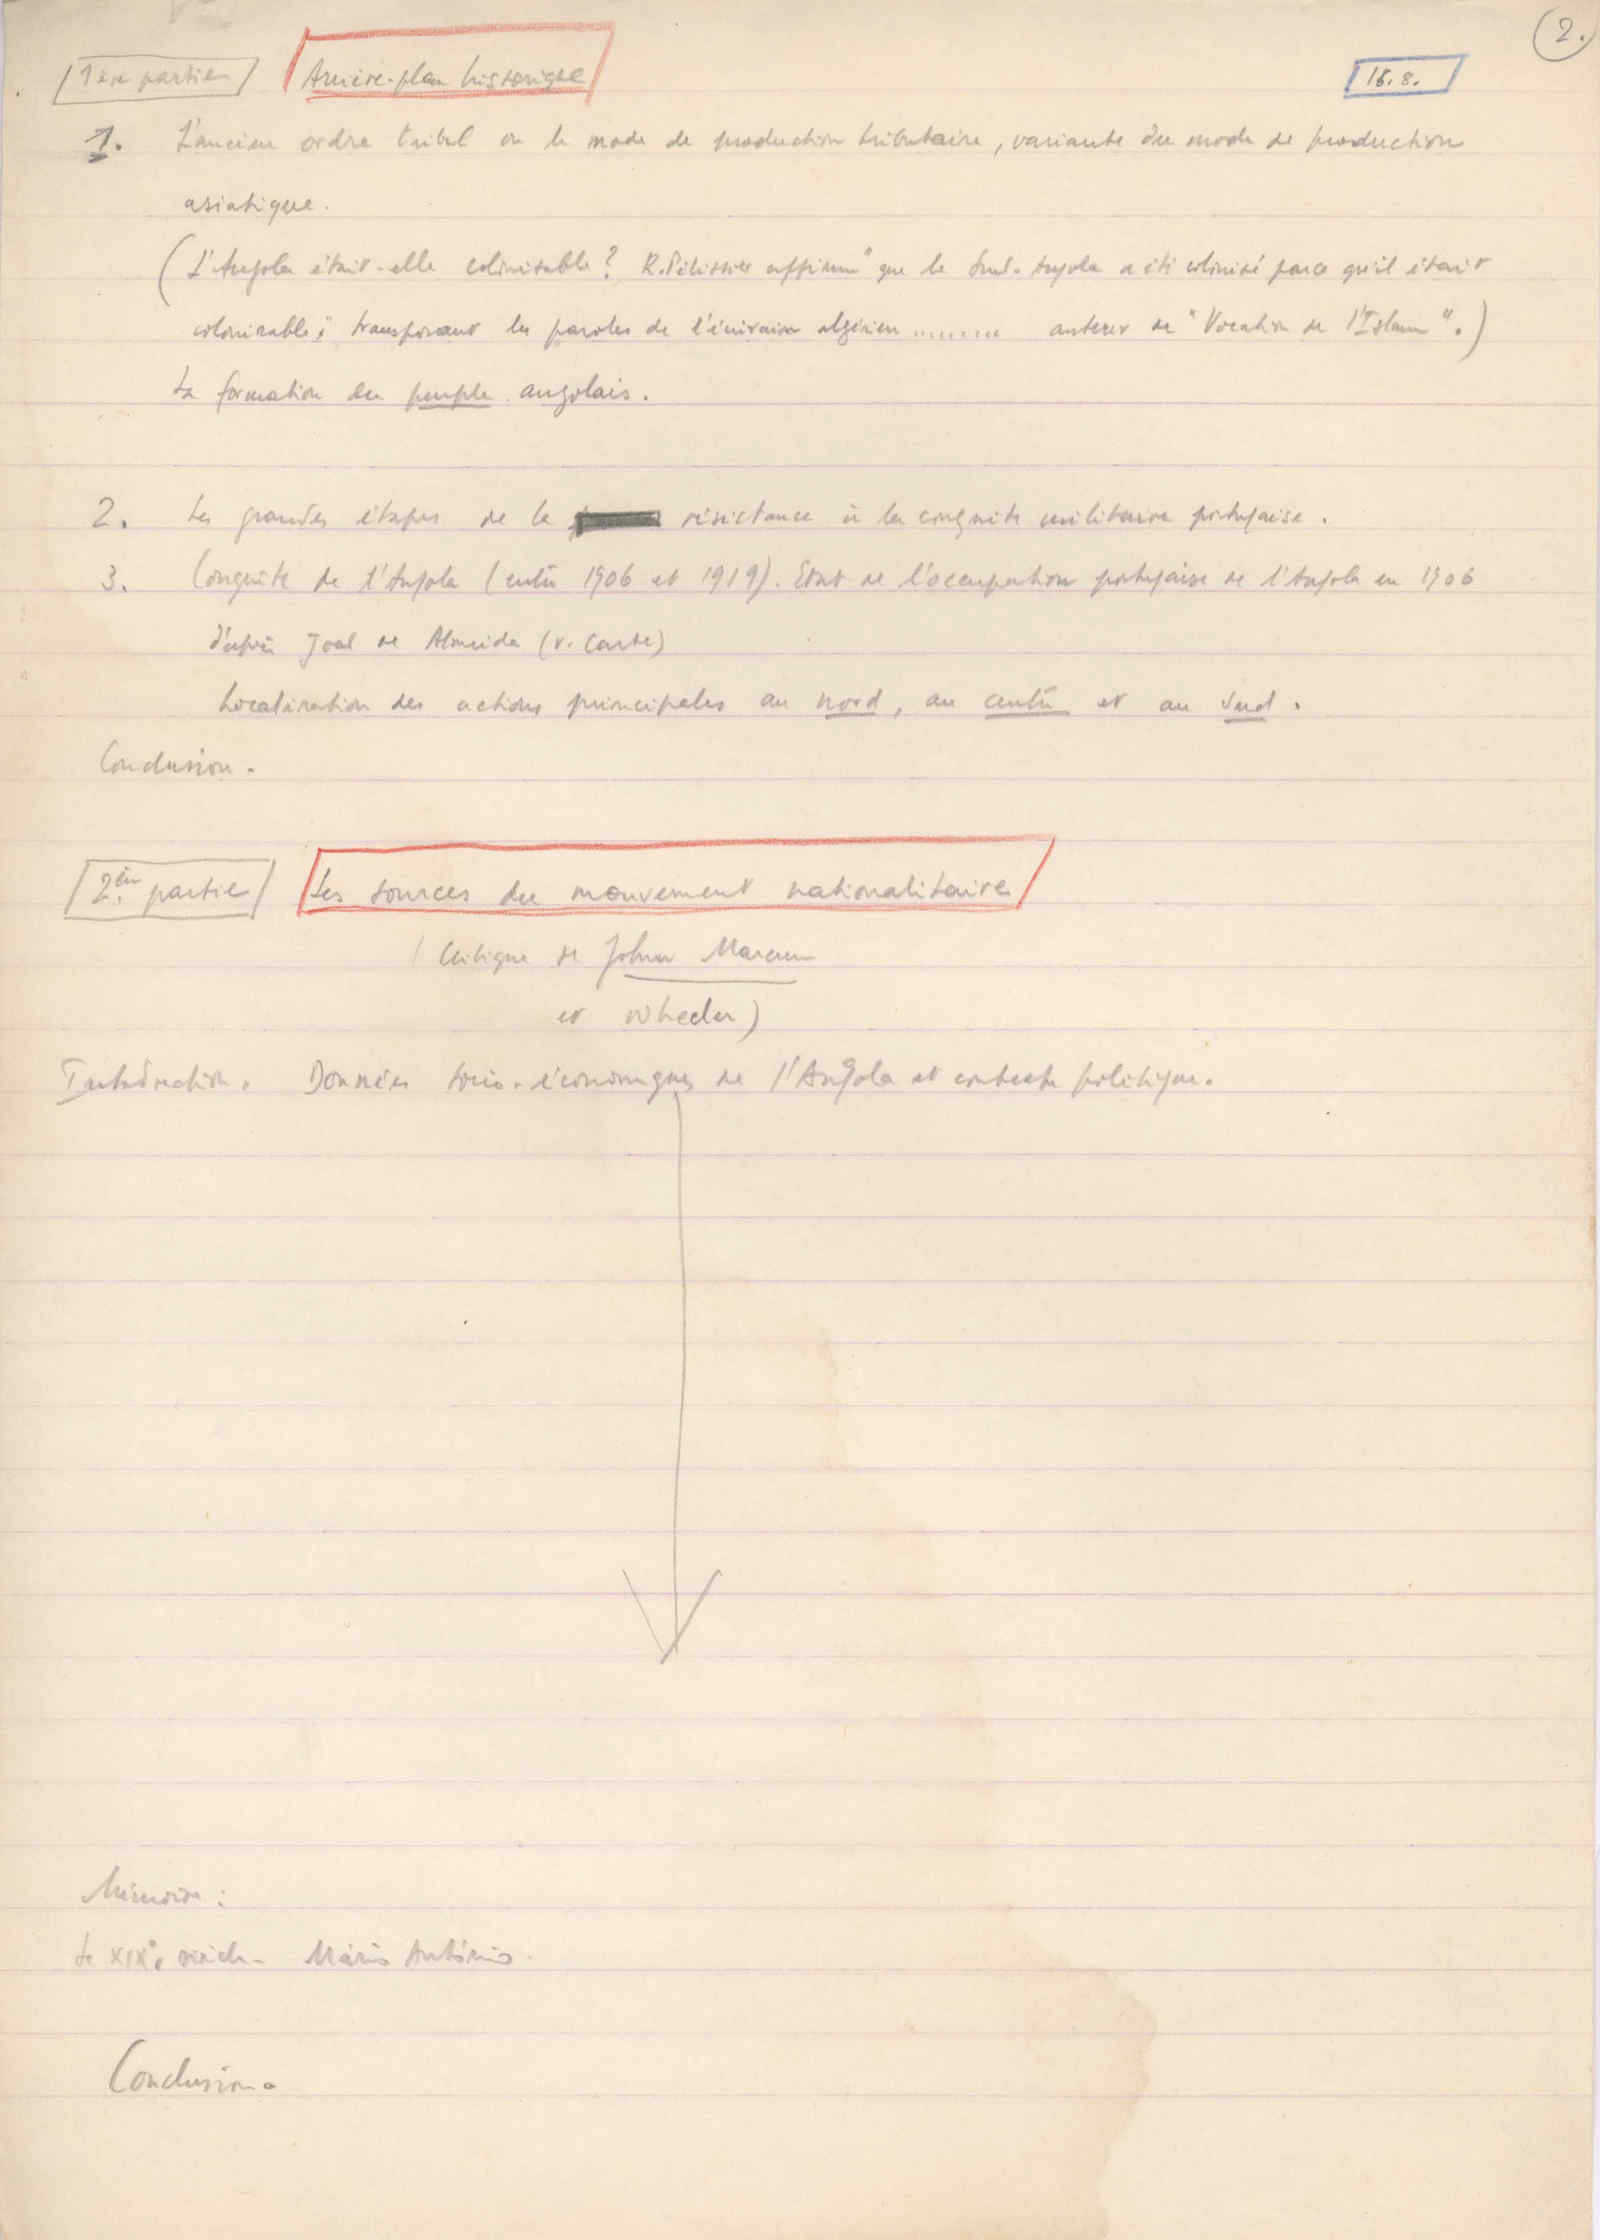 2.
1ère partie Arrière-plan historique 18.8.
1. L'ancien ordre tribal ou le mode de production tributaire, variante du mode de production
asiatique.
(L'Angola était-elle colonisable? R. Pélissier affirme "que le Sud-Angola a été colonisé parce qu'il était
colonisable", transposant les paroles de l'écrivain algérien ......... auteur de "Vocation de l'Islam".)
La formation du peuple angolais.
2. Les grandes étapes de la résistance à la conquête militaire portugaise.
3. Conquête de l'Angola (entre 1906 et 1919). Etat de l'occupation portugaise de l'Angola en 1906
d'après João de Almeida (v. Carte)
Localisation des actions principales au nord, au centre et au sud.
Conclusion.
2ème partie Les sources du mouvement nationalitaire
(Critique de John Marcum
et Wheeler)
Introduction. Données socio-économiques de l'Angola et contexte politique.
Mémoire:
Le XIXe siècle - Mário António.
Conclusion.